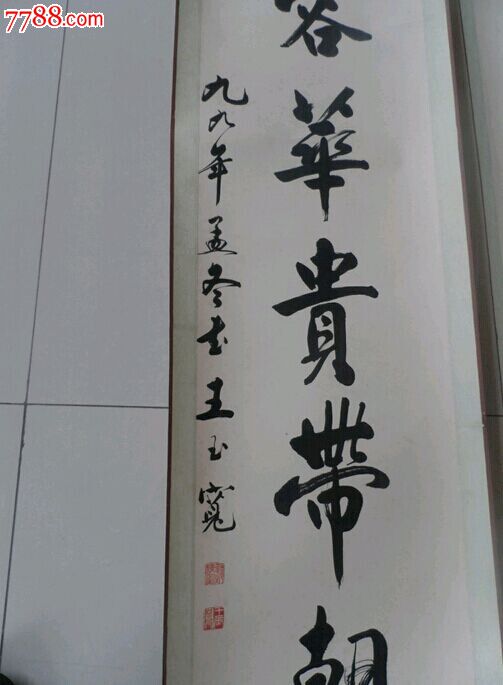 7788.com
容華貴帶朝
九九年孟冬書王玉寬